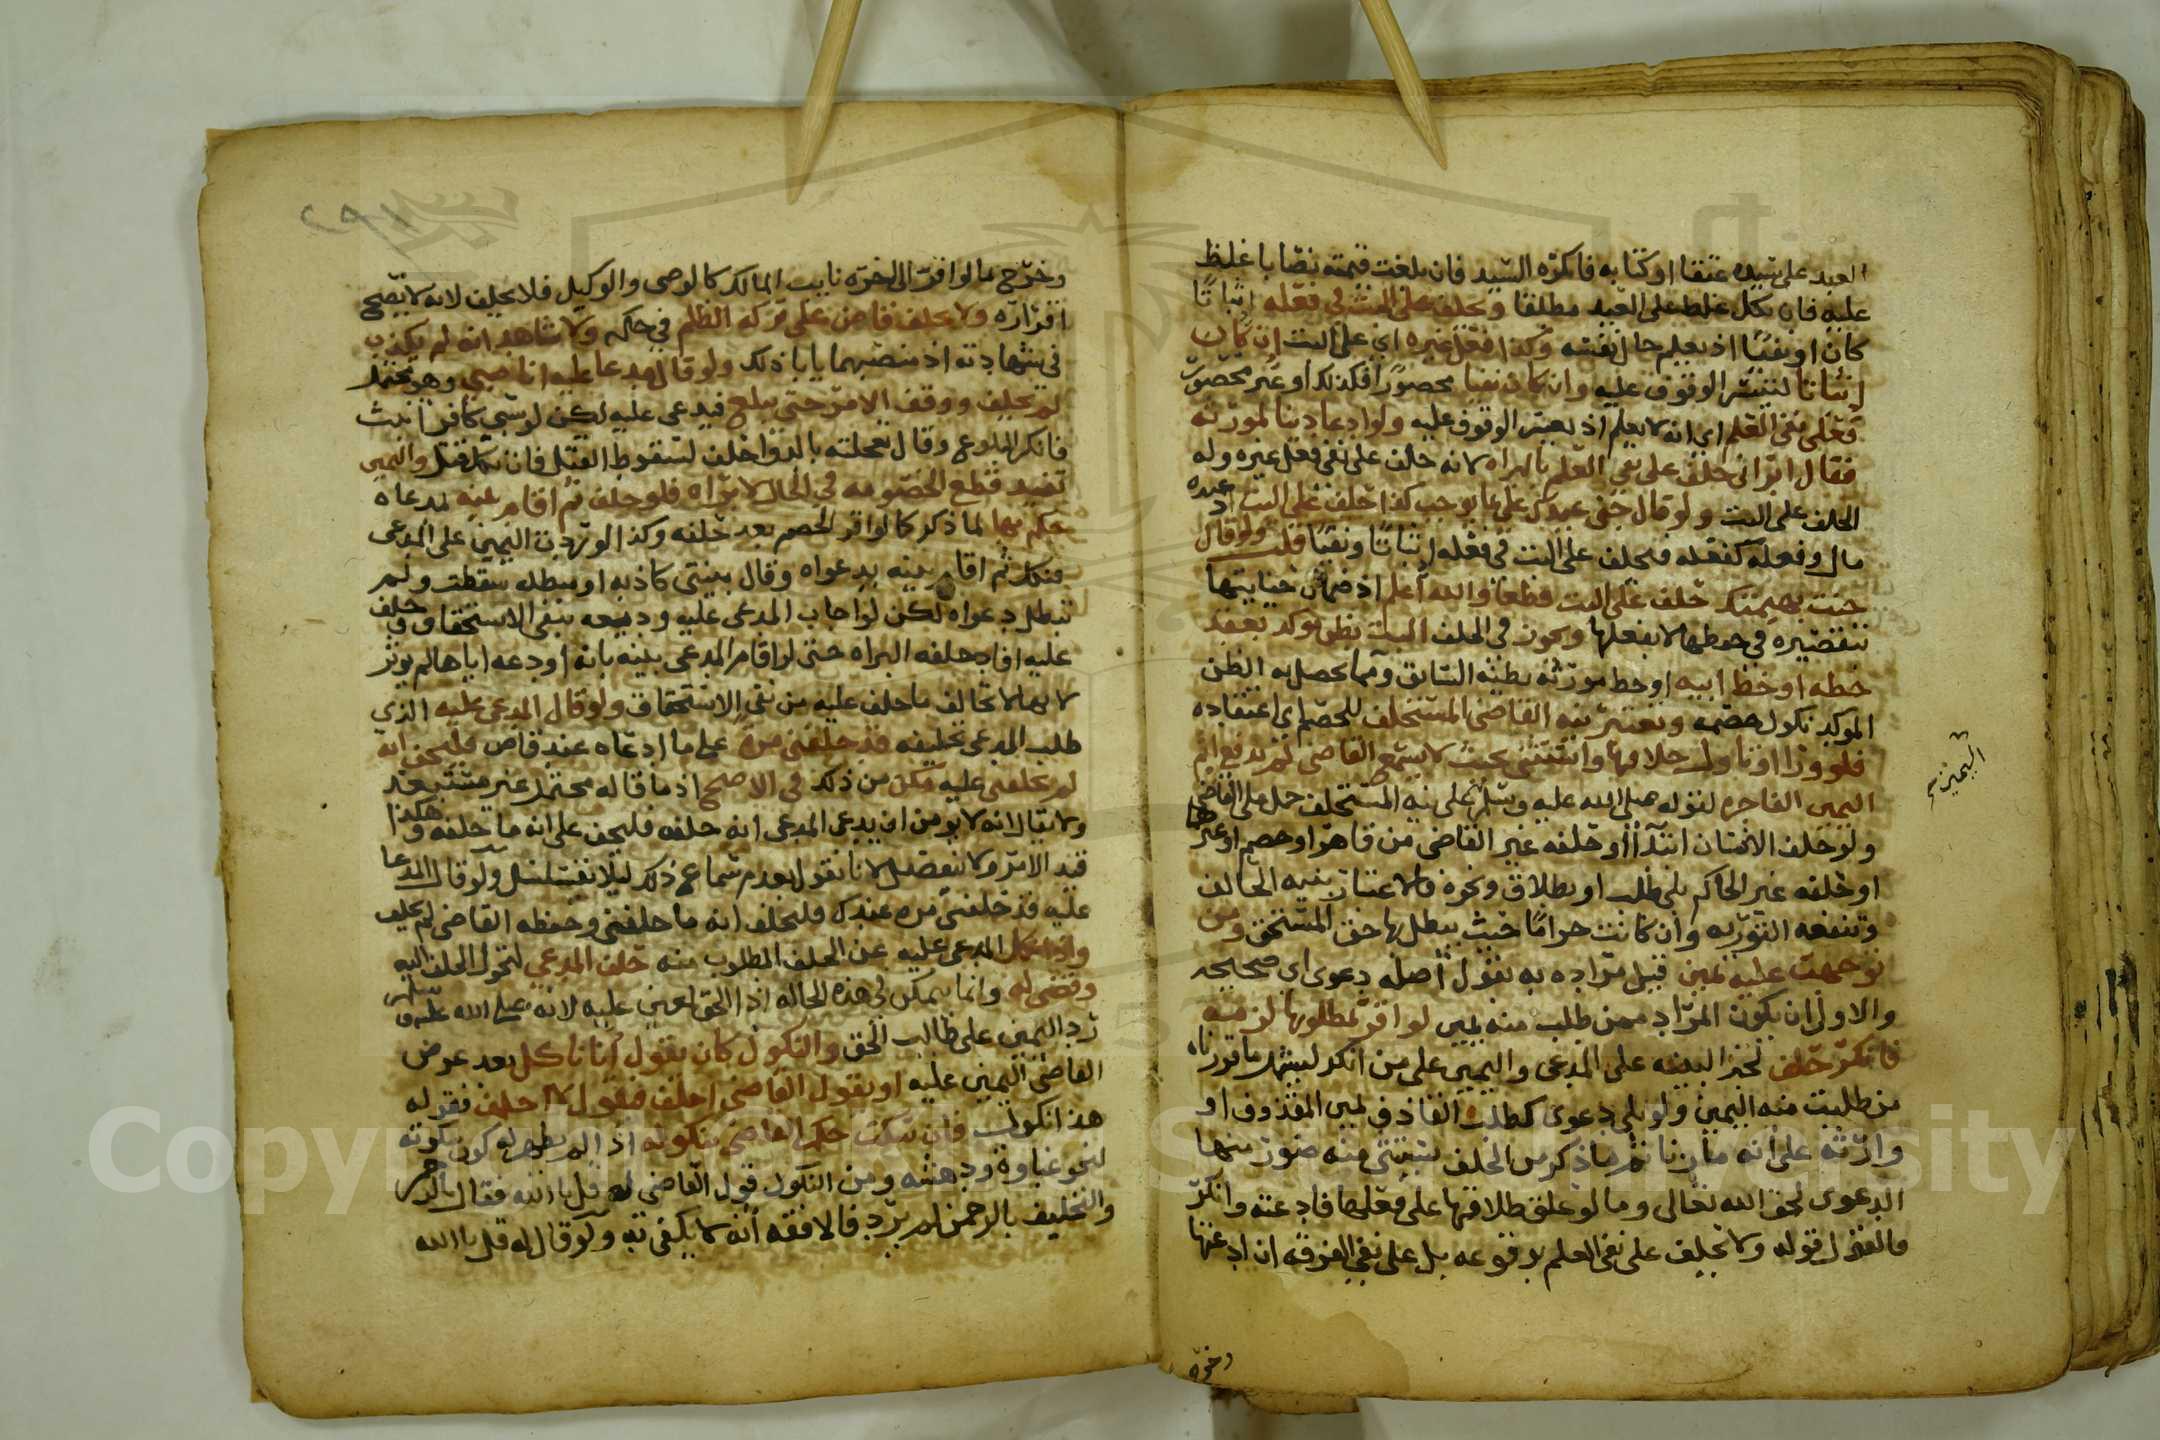 العبد على سيده عتقا او كتابه فانكره السيد فان بلغت قيمته نصابا غلظ
عليه فان نكل غلظ على العبد مطلقا ويحلف على البت في فعله اثباتا
كان او نفيا اذ يعلم حال نفسه وكذا فعل غيره اي على البت ان كان
اثباتا لتيسر الوقوف عليه وان كان نفيا محصورا فكذلك او غير محصور
فعلى نفي العلم اي انه لا يعلم اذ يعسر الوقوف عليه ولو ادعا دينا لمورثه
فقال ابراني حلف على نفي العلم بالبراه لانه حلف على نفي فعل غيره وله
الحلف على البت ولو قال جنى عبدك علي بما يوجب كذا حلف على البت اذ عبده
مال وفعله كفعله فحلف على البت في فعله اثباتا ونفيا قلت ولو قال
جنت بهيمتك حلف على البت قطعا والله اعلم اذ ضمان جنايتها
بتقصيره في حفظها لا بفعلها ويجوز في الحلف البت بظن موكد يعتمد
خطه او خط ابيه او خط مورثه بظنه السابق ومما يحصل به الظن
الموكد نكول خصمه وتعتبر نيه القاضي المستحلف للخصم اي اعتقاده
فلو ورا او تاول خلافها او استثنى بحيث لا يسمع القاضي لم يدفع اثم
اليمين الفاجره لقوله صلى الله عليه وسلم اليمين على نيه المستحلف حمل على القاضي
ولو حلف الانسان ابتدا او حلفه غير القاضي من قاهر او خصم او غيرها
او حلفه غير الحاكم بلى طلب او بطلاق ونحوه فالاعتبار بنيه الحالف
وتنفعه التوريه وان كانت حراما حيث يبطل بها حق المستحق ومن
توجهت عليه يمين قيل مراده به بقول اصله دعوى اي صحيحه
والاول ان يكون المراد ممن طلب منه يمين لو اقر بمطلوبها لزمه
فانكر حلف لخبر البينه على المدعي واليمين على من انكر ليشمل ما قررناه
من طلبت منه اليمين ولو بلى دعوى كطلب القاذف يمين المقذوف او
وارثه على انه ما زنا ثم ما ذكر من الحلف يستثنى منه صور منها
الدعوى لحق الله تعالى وما لو علق طلاقها على فعلها فادعته وانكر
فالقول قوله ولا يحلف على نفي العلم بوقوعه بل على نفي الفرقه ان ادعتها
وخرج
اليمين
وخرج بما لو اقر الى اخره نايب المالك كالوصي والوكيل فلا يحلف لانه لا يصح
اقراره ولا يحلف قاض على تركه الظلم في حكمه ولا شاهد انه لم يكذب
في شهادته اذ منصبهما يابا ذلك ولو قال مدعا عليه انا صبي وهو محتمل
لم يحلف ووقف الامر حتى يبلغ فيدعى عليه لكن لو سبي كافر انبت
فانكر البلوغ وقال تعجلته بالدوا حلف لسقوط القتل فان نكل قتل واليمين
تفيد قطع الخصومه في الحال لا براه فلو حلف ثم اقام بينه لمدعاه
حكم بها لما ذكر كما لو اقر الخصم بعد حلفه وكذا لو ردت اليمين على المدعى
فنكل ثم اقام بينه بدعواه وقال بينتي كاذبه او مبطله سقطت ولم
تبطل دعواه لكن لو اجاب المدعى عليه وديعه بنفي الاستحقاق وحلف
عليه افاد حلفه البراه حتى لو اقام المدعي بينه بانه اودعه اياها لم يوثر
لانها لا تخالف ما حلف عليه من نفي الاستحقاق ولو قال المدعى عليه الذي
طلب المدعي تحليفه قد حلفني مره على ما ادعاه عند قاض فليحلف انه
لم يحلفني عليه مكن من ذلك في الاصح اذ ما قاله محتمل غير مستبعد
ولا يقال انه لا يومن ان يدعي المدعى انه حلفه فليحلف على انه ما حلفه وهكذا
فيد الامر ولا ينفصل لانا نقول بعدم سماع ذلك ليلا يتسلسل ولو قال المدعا
عليه قد حلفني مره عندك فليحلف انه ما حلفني وحفظه القاضي لم يحلف
واذا نكل المدعى عليه عن الحلف المطلوب منه حلف المدعي لتحول الحلف اليه
وقضي له وانما يمكن في هذه الحاله اذا الحق لمعين عليه لانه صلى الله عليه وسلم
رد اليمين على طالب الحق والنكول كان يقول انا ناكل بعد عرض
القاضي اليمين عليه او يقول القاضي احلف فيقول لا احلف فقوله
هذا نكول فان سكت حكم القاضي بنكوله اذا لم يظهر له كون سكوته
لنحو غباوة ودهشه ومن النكول قول القاضي له قل بالله فقال بالرحمن
والتحليف بالرحمن لم يرد فالا فقه انه لا يكفي به ولو قال له قل بالله